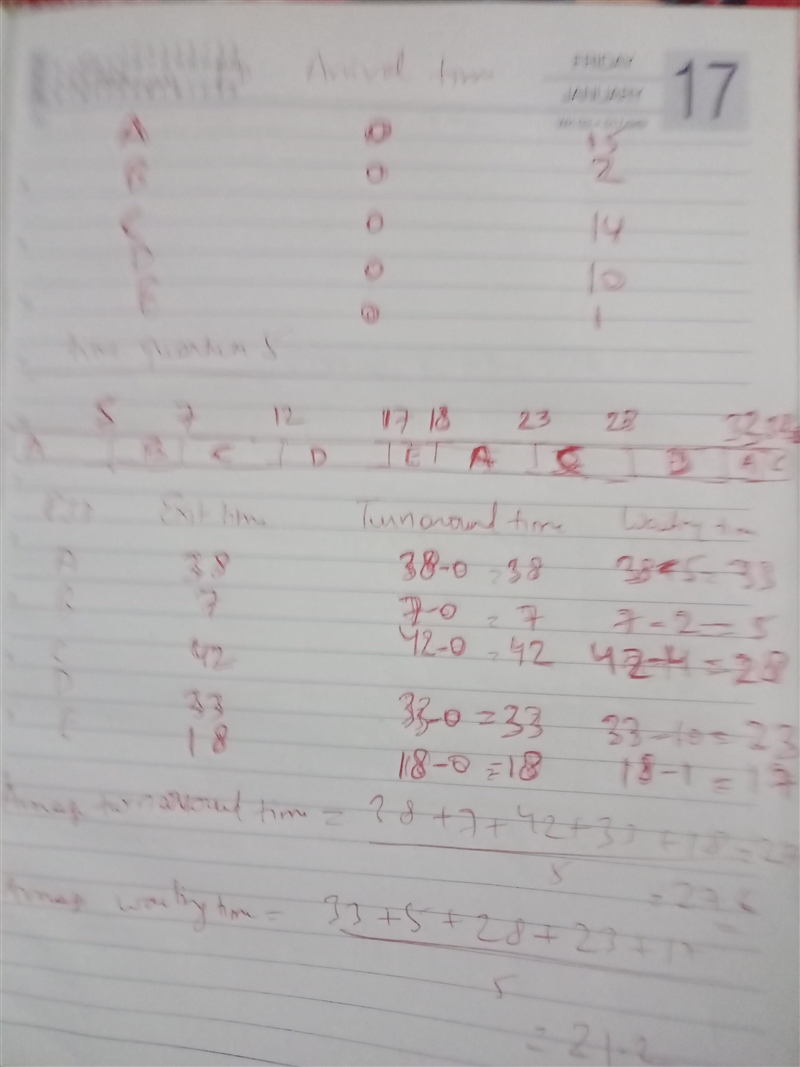 Arrival time FRIDAY 17
JANUARY
A 0 15
B 0 2
C 0 14
D 0 10
E 0 1
5 7 12 17 18 23 28 33
A B C D E A C D A C
Exit time Turnaround time Waiting time
A 38 38-0 = 38 38-5 = 33
B 7 7-0 = 7 7-2 = 5
C 42 42-0 = 42 42-14 = 28
D 33 33-0 = 33 33-10 = 23
E 18 18-0 = 18 18-1 = 17
turnaround time = 38+7+42+33+18 =
5
= 27.6
waiting time = 33+5+28+23+17
5
= 21.2